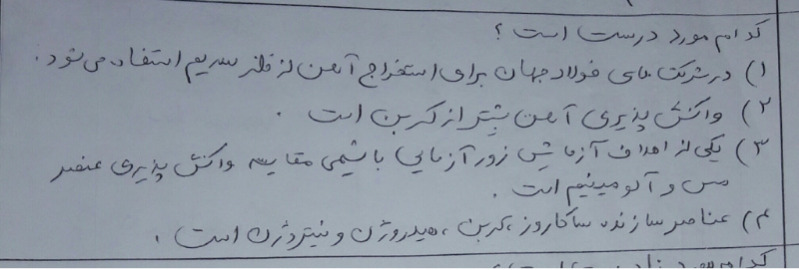 کدام مورد درست است ؟
۱) در شرکت های فولاد جهان برای استخراج آهن از فلز سدیم استفاده می شود .
۲) واکنش پذیری آهن بیشتر از کربن است .
۳) یکی از اهداف آزمایش زورآزمایی با شیمی مقایسه واکنش پذیری عنصر
مس و آلومینیم است .
۴) عناصر سازنده ساکاروز ، کربن ، هیدروژن و نیتروژن است .
کدام مورد